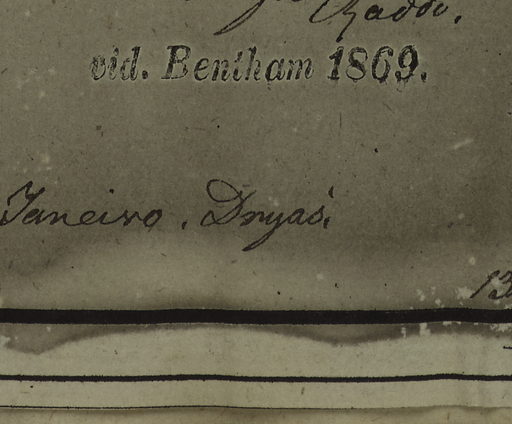 Raddi.
vid. Bentham 1869.
Janeiro.
13